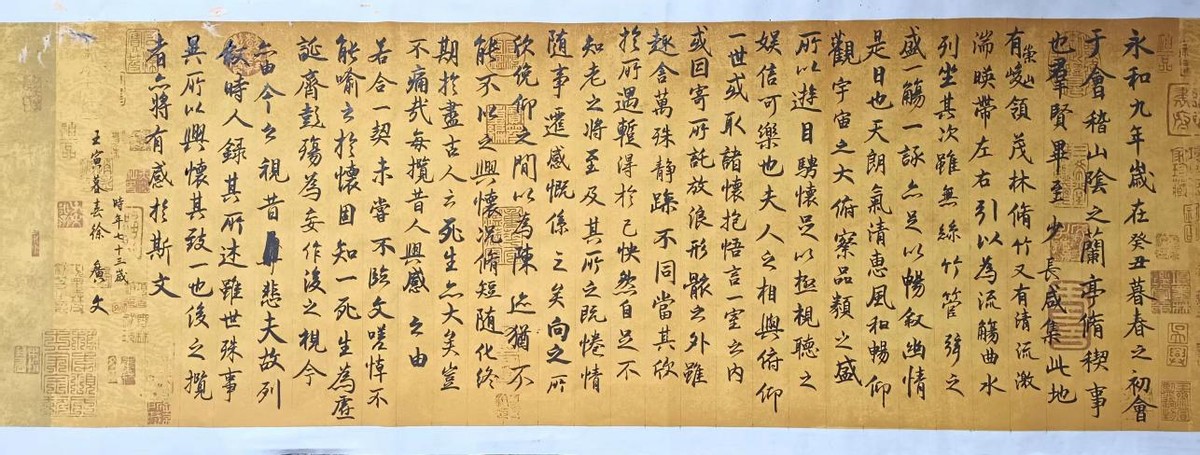 永和九年歲在癸丑暮春之初會
于會稽山陰之蘭亭脩稧事
也羣賢畢至少長咸集此地
有崇山峻領茂林脩竹又有清流激
湍暎帶左右引以為流觴曲水
列坐其次雖無絲竹管弦之
盛一觴一詠亦足以暢叙幽情
是日也天朗氣清惠風和暢仰
觀宇宙之大俯察品類之盛
所以遊目騁懷足以極視聽之
娛信可樂也夫人之相與俯仰
一世或取諸懷抱悟言一室之內
或因寄所託放浪形骸之外雖
趣舍萬殊靜躁不同當其欣
於所遇蹔得於己怏然自足不
知老之將至及其所之既惓情
隨事遷感慨係之矣向之所
欣俛仰之間以為陳迹猶不
能不以之興懷況脩短隨化終
期於盡古人云死生亦大矣豈
不痛哉每攬昔人興感之由
若合一契未嘗不臨文嗟悼不
能喻之於懷固知一死生為虛
誕齊彭殤為妄作後之視今
亦由今之視昔悲夫故列
叙時人錄其所述雖世殊事
異所以興懷其致一也後之攬
者亦將有感於斯文
時年七十三歲
壬寅春徐文